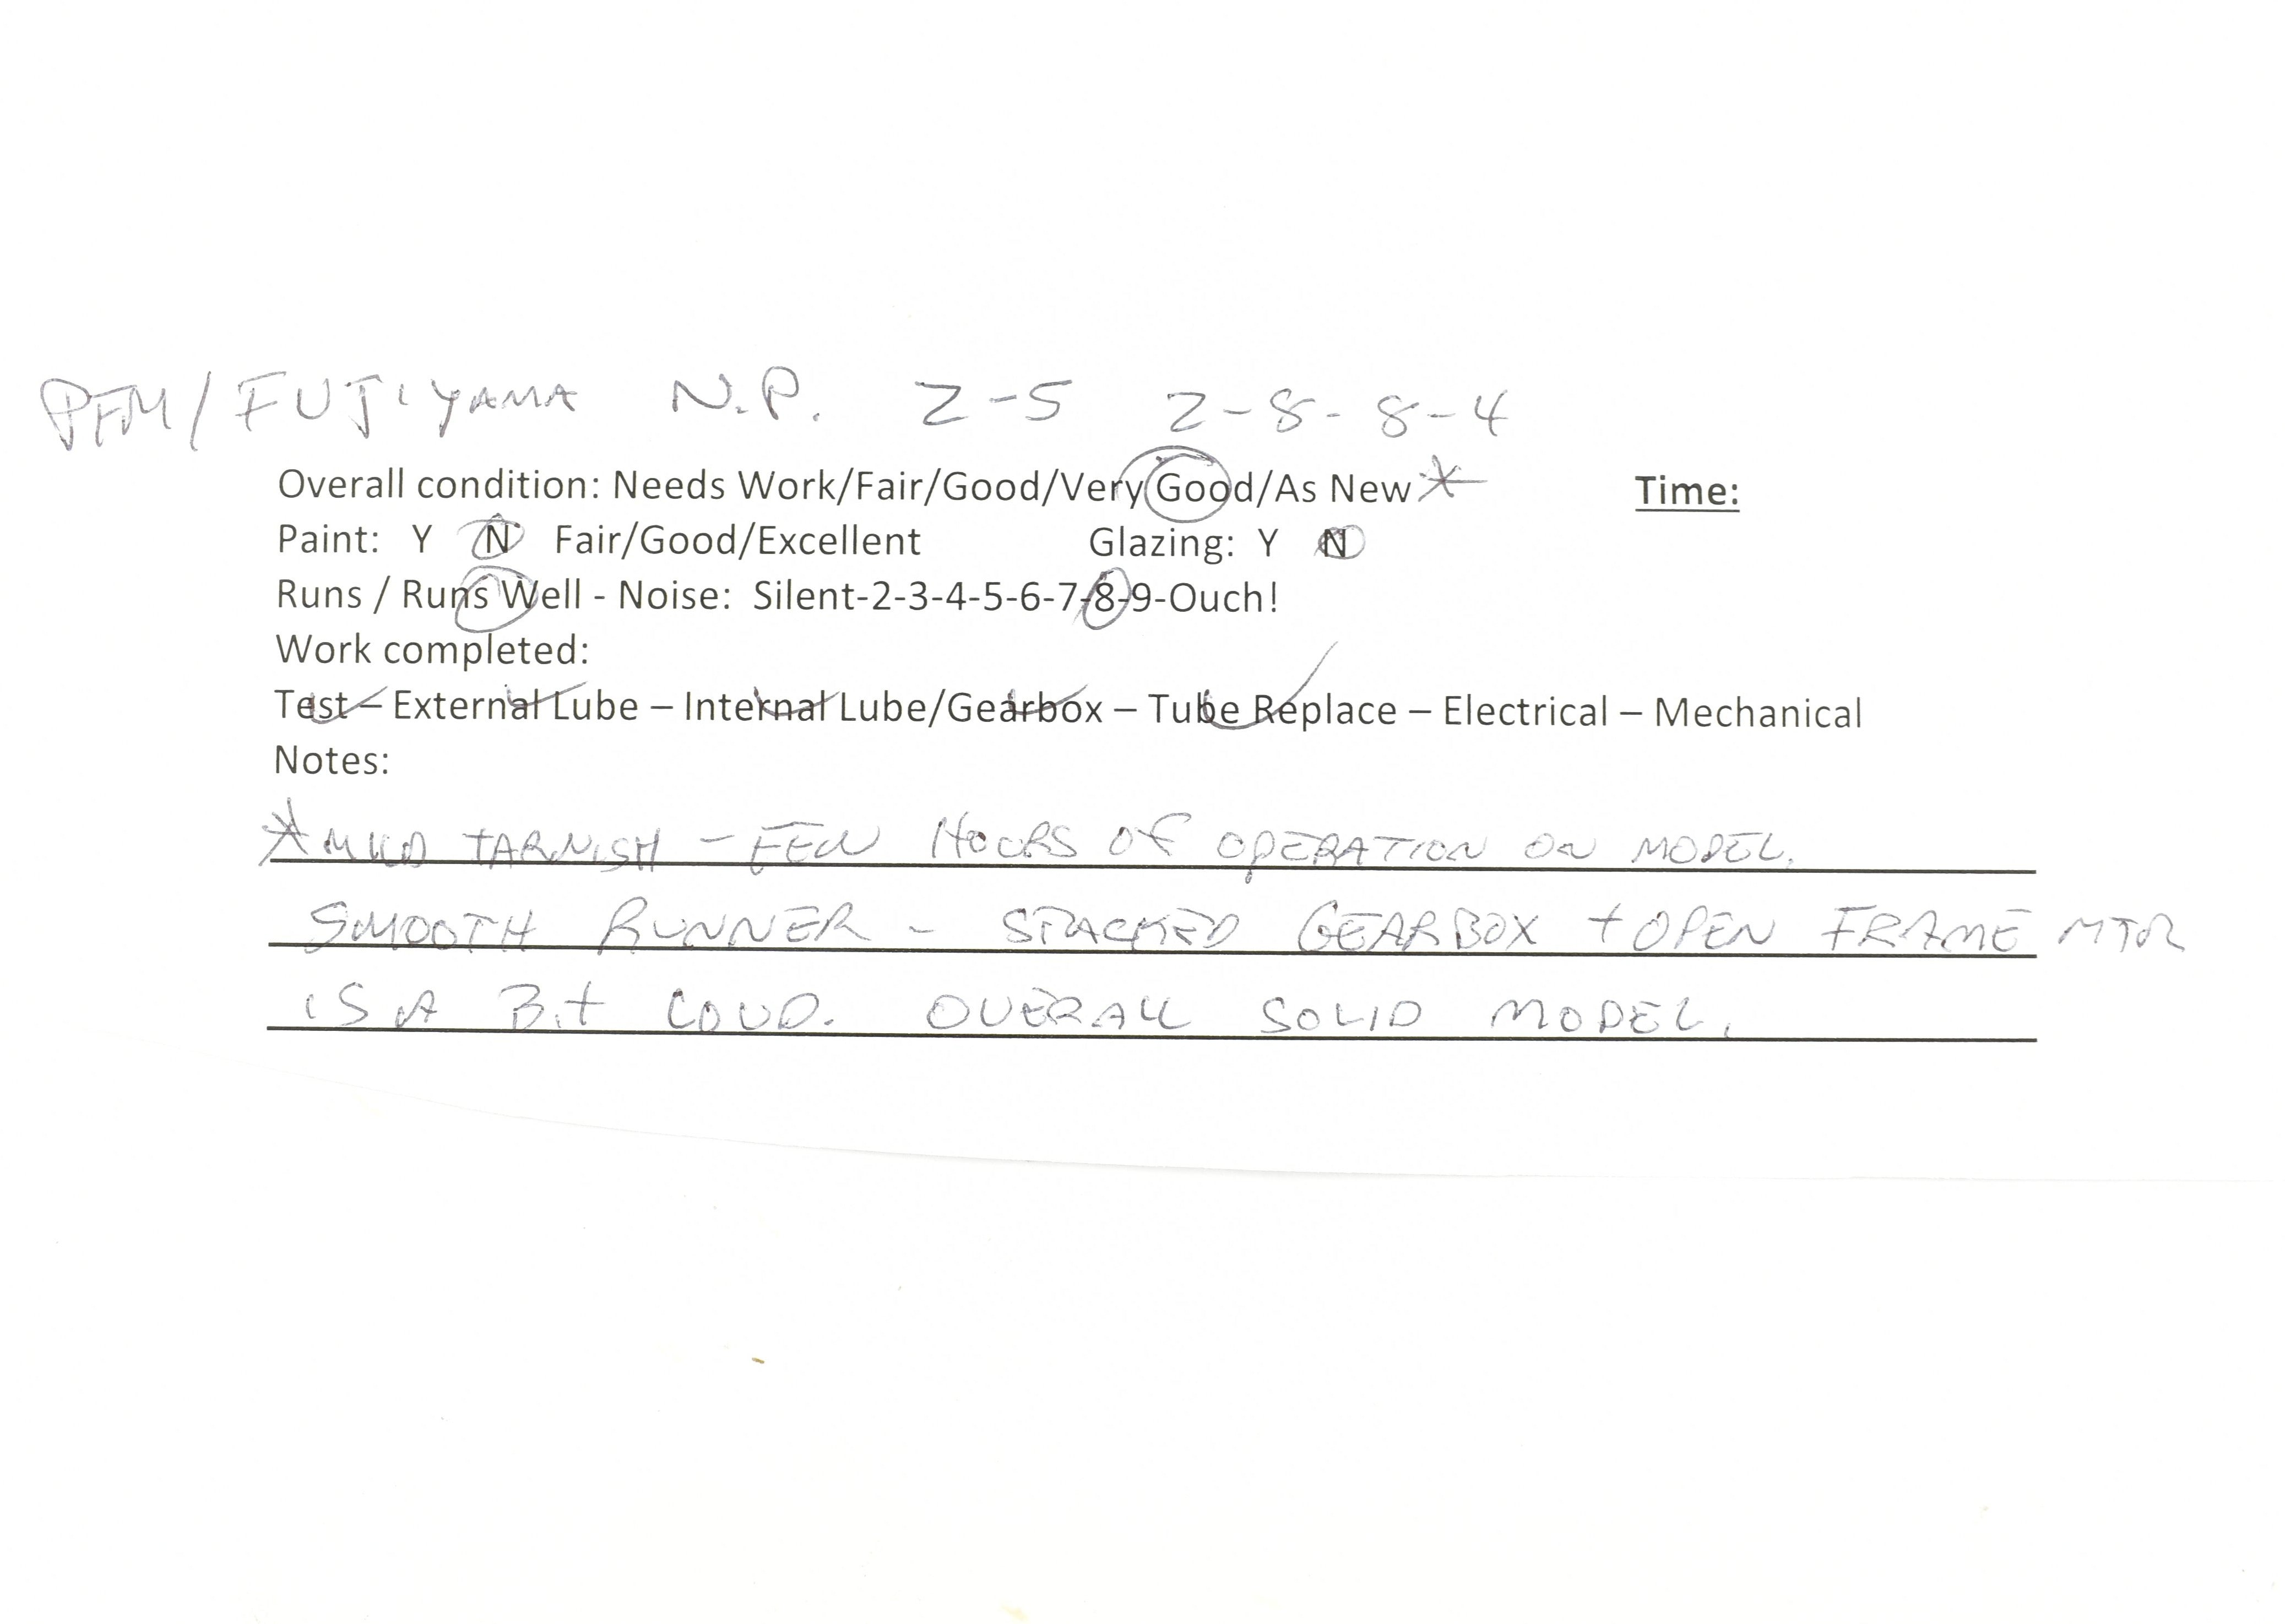 PFM/FUJIYAMA N.P. Z-5 2-8-8-4
Overall condition: Needs Work/Fair/Good/Very Good/As New * Time:
Paint: Y N Fair/Good/Excellent Glazing: Y N
Runs / Runs Well - Noise: Silent-2-3-4-5-6-7-8-9-Ouch!
Work completed:
Test – External Lube – Internal Lube/Gearbox – Tube Replace – Electrical – Mechanical
Notes:
* MILD TARNISH - FEW HOURS OF OPERATION ON MODEL.
SMOOTH RUNNER - STACKED GEARBOX + OPEN FRAME MTR
IS A BIT LOUD. OVERALL SOLID MODEL.